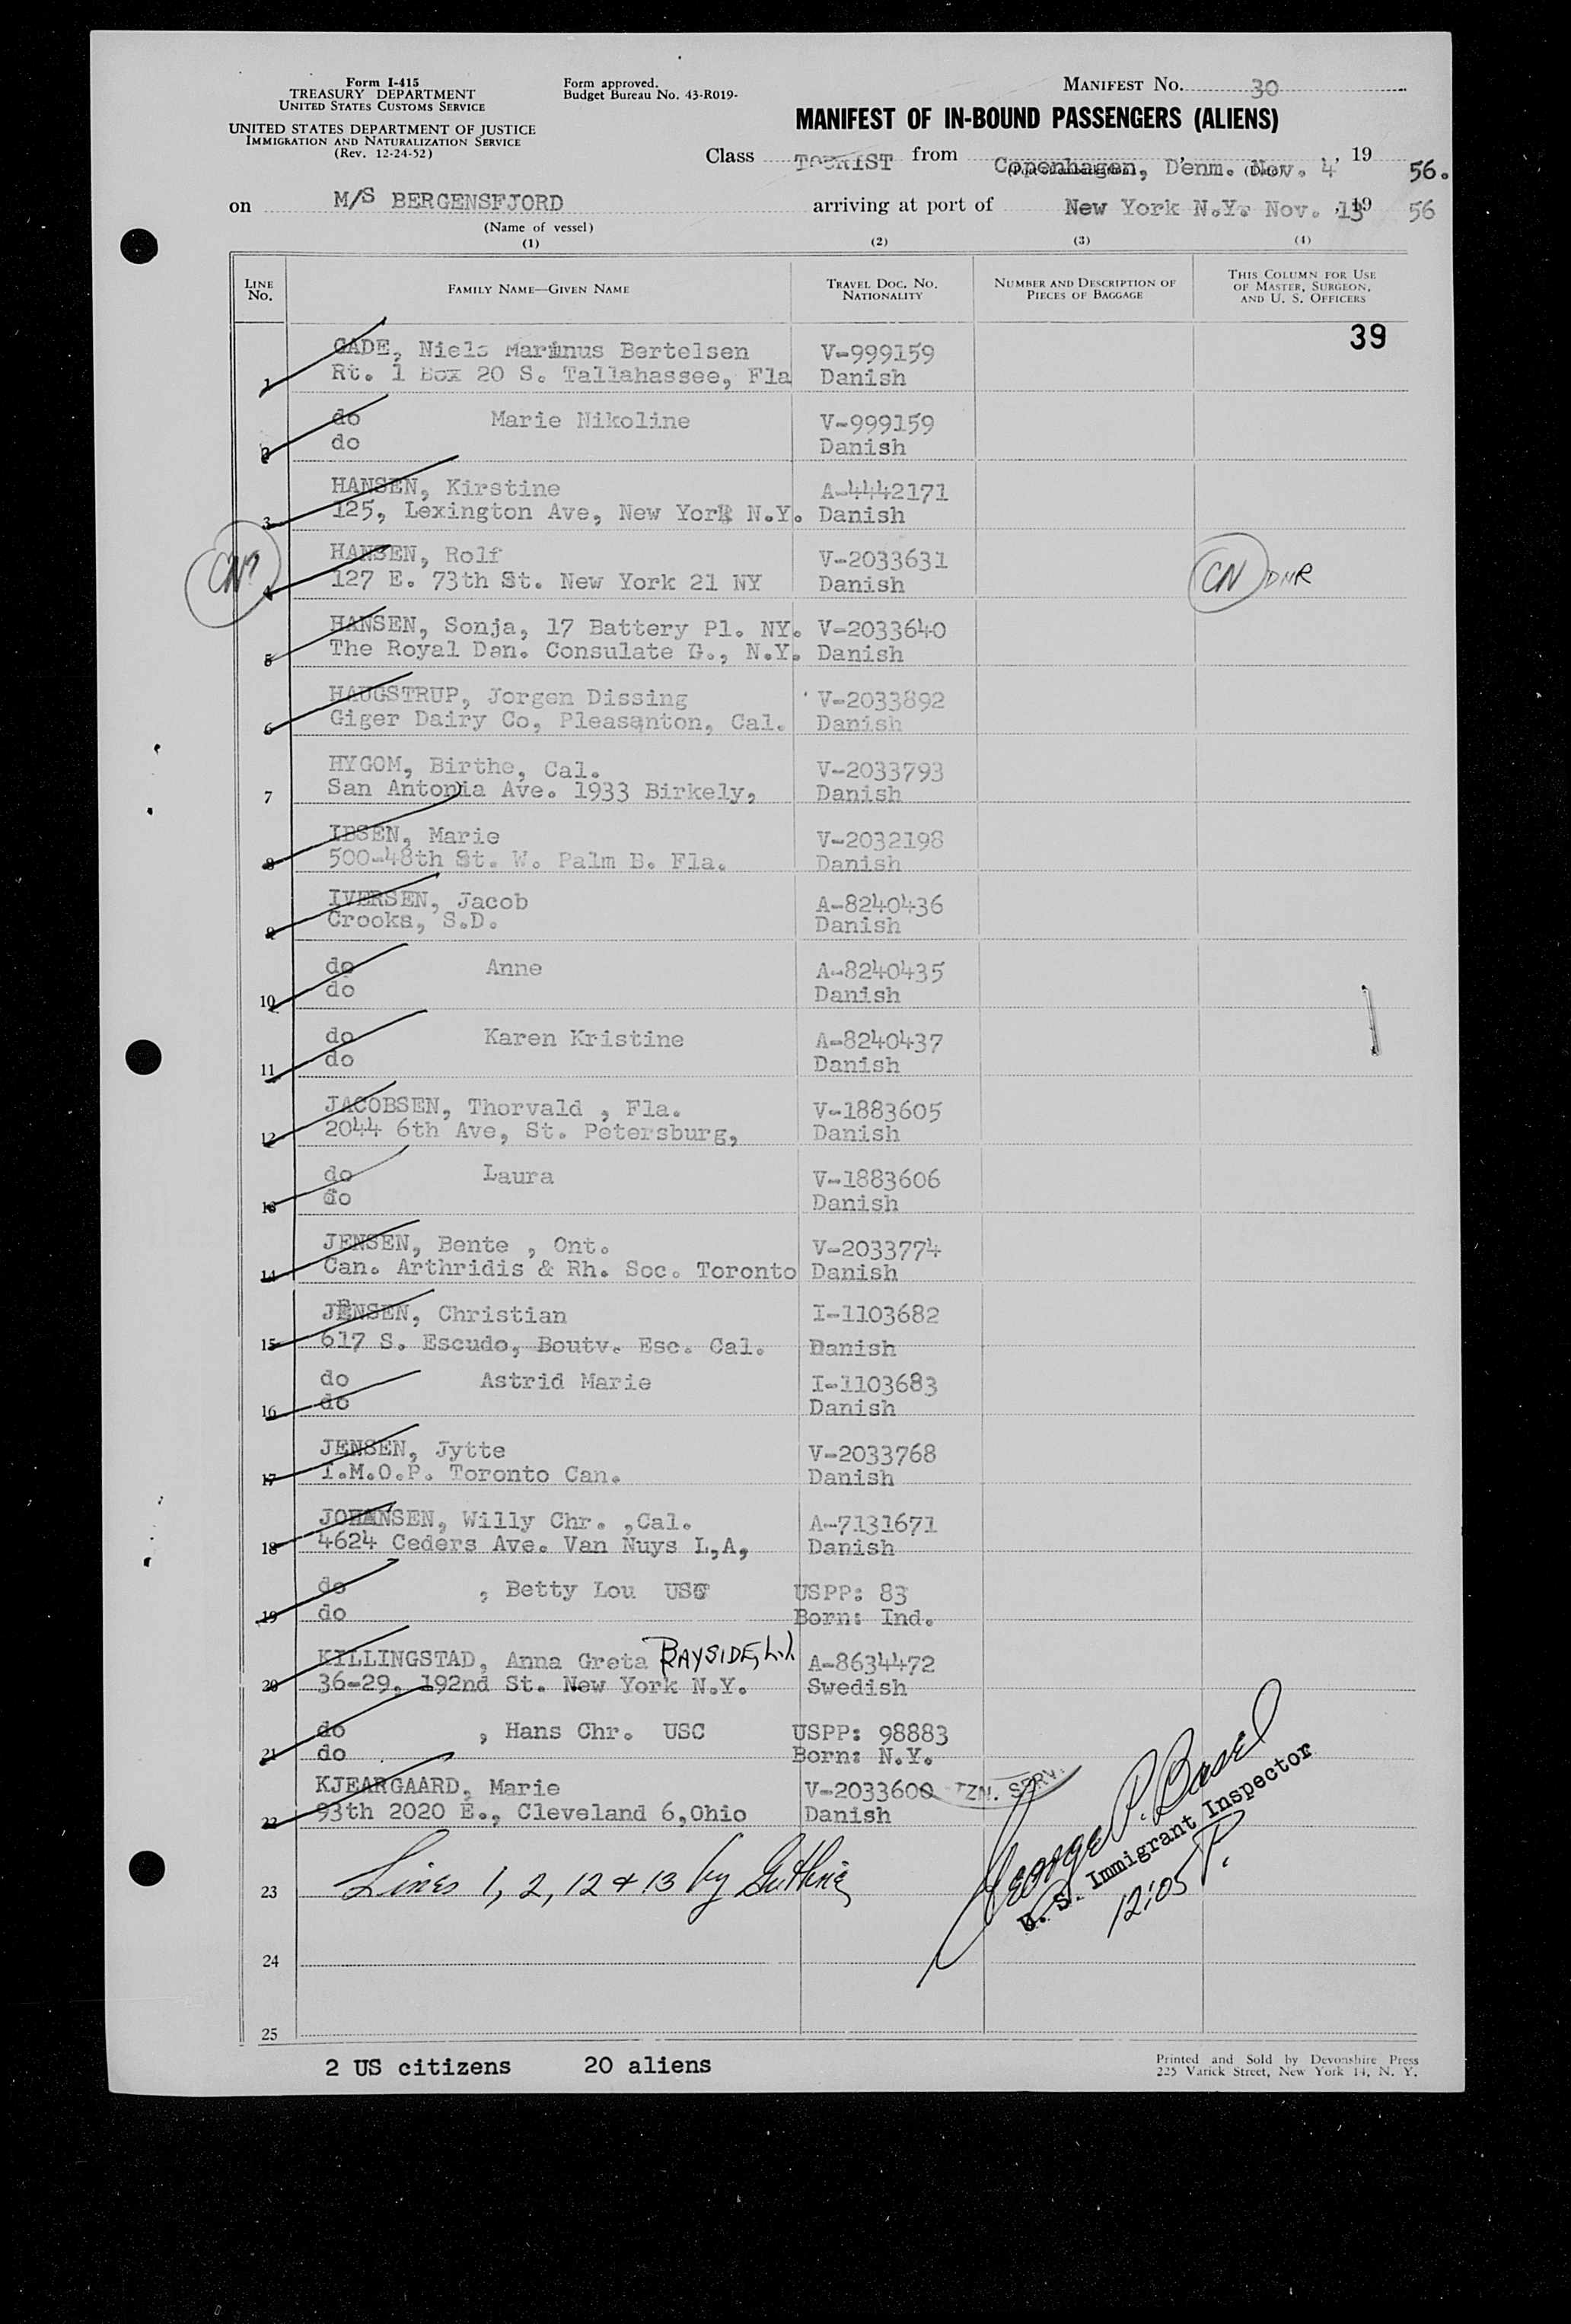 Form I-415
TREASURY DEPARTMENT
UNITED STATES CUSTOMS SERVICE
UNITED STATES DEPARTMENT OF JUSTICE
IMMIGRATION AND NATURALIZATION SERVICE
(Rev. 12-24-52)
Form approved.
Budget Bureau No. 43-R019-
MANIFEST No. 30
MANIFEST OF IN-BOUND PASSENGERS (ALIENS)
Class TOURIST from Copenhagen, Denm. Nov. 4, 19 56.
on M/S BERGENSFJORD arriving at port of New York N.Y. Nov. 13, 19 56
(Name of vessel)
(1) (2) (3) (4)
LINE No. FAMILY NAME—GIVEN NAME TRAVEL DOC. No. NATIONALITY NUMBER AND DESCRIPTION OF PIECES OF BAGGAGE THIS COLUMN FOR USE OF MASTER, SURGEON, AND U. S. OFFICERS
39
GADE, Niels Marinus Bertelsen V-999159
1 Rt. 1 Box 20 S. Tallahassee, Fla Danish
do Marie Nikoline V-999159
2 do Danish
HANSEN, Kirstine A-4442171
3 125, Lexington Ave, New York N.Y. Danish
HANSEN, Rolf V-2033631
CN? 4 127 E. 73th St. New York 21 NY Danish CN DNR
HANSEN, Sonja, 17 Battery Pl. NY. V-2033640
5 The Royal Dan. Consulate G., N.Y. Danish
HAUGSTRUP, Jorgen Dissing V-2033892
6 Giger Dairy Co, Pleasanton, Cal. Danish
HYGOM, Birthe, Cal. V-2033793
7 San Antonia Ave. 1933 Birkely, Danish
IBSEN, Marie V-2032198
8 500-48th St. W. Palm B. Fla. Danish
IVERSEN, Jacob A-8240436
9 Crooks, S.D. Danish
do Anne A-8240435
10 do Danish
do Karen Kristine A-8240437
11 do Danish
JACOBSEN, Thorvald , Fla. V-1883605
12 2044 6th Ave, St. Petersburg, Danish
do Laura V-1883606
13 do Danish
JENSEN, Bente , Ont. V-2033774
14 Can. Arthridis & Rh. Soc. Toronto Danish
JENSEN, Christian I-1103682
15 617 S. Escudo, Boutv. Esc. Cal. Danish
do Astrid Marie I-1103683
16 do Danish
JENSEN, Jytte V-2033768
17 I.M.O.P. Toronto Can. Danish
JOHANSEN, Willy Chr. ,Cal. A-7131671
18 4624 Ceders Ave. Van Nuys L,A, Danish
do , Betty Lou USC USPP: 83
19 do Born: Ind.
KILLINGSTAD, Anna Greta BAYSIDE, L.I. A-8634472
20 36-29, 192nd St. New York N.Y. Swedish
do , Hans Chr. USC USPP: 98883
21 do Born: N.Y.
KJEARGAARD, Marie V-2033600
22 93th 2020 E., Cleveland 6,Ohio Danish
TZN. SERV.
George P. Basel
U. S. Immigrant Inspector
12:05 P.
23 Lines 1, 2, 12 & 13 by Guthrie
24
25
2 US citizens 20 aliens
Printed and Sold by Devonshire Press
225 Varick Street, New York 14, N. Y.